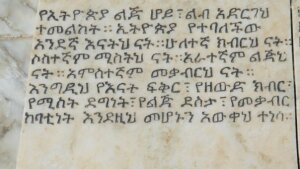 የኢትዮጵያ ልጅ ሆይ፣ልብ አድርገህ
ተመልከት። ኢትዮጵያ የተባለችው
አንደኛ እናትህ ናት።ሁለተኛ ክብርህ ናት።
ሶስተኛም ሚስትህ ናት።አራተኛም ልጅህ
ናት። አምስተኛም መቃብርህ ናት።
እንግዲህ የእናት ፍቅር ፣ የዘውድ ክብር፣
የሚስት ደግነት፣የልጅ ደስታ፣የመቃብር
ከባቲነት እንደዚህ መሆኑን አውቀህ ተነሳ።